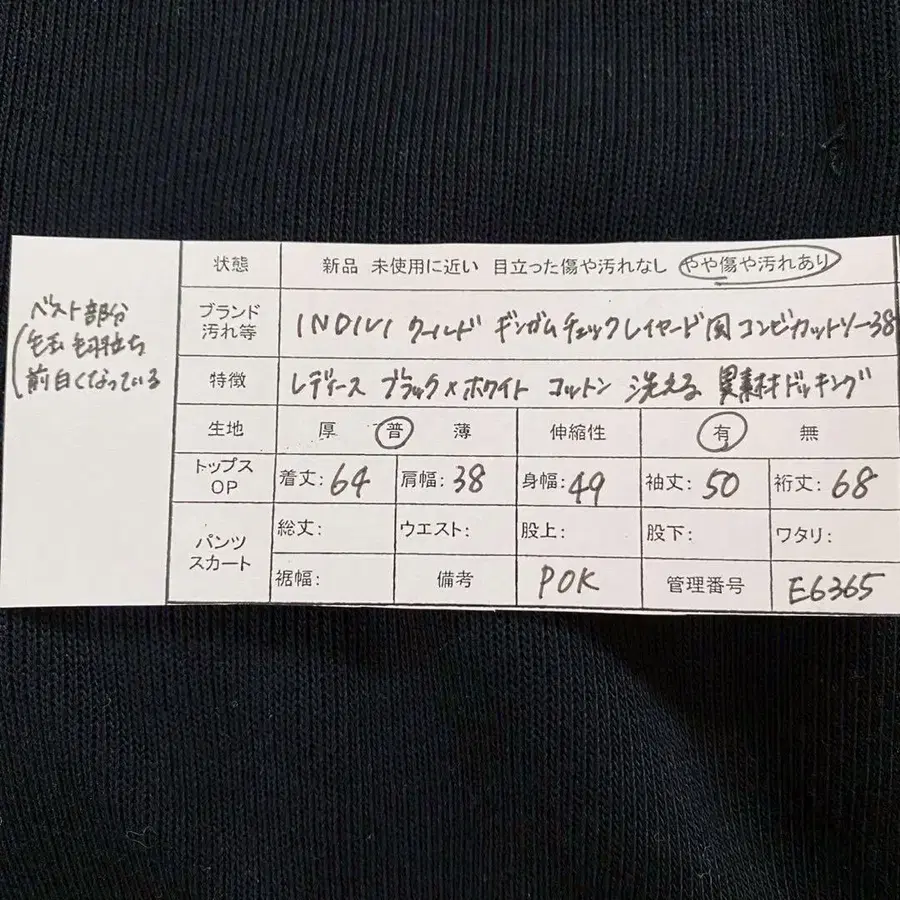 ベスト部分
毛玉 毛羽立ち
前白くなっている
状態 新品 未使用に近い 目立った傷や汚れなし やや傷や汚れあり
ブランド 汚れ等 INDIVI ワールド ギンガムチェックレイヤード風コンビカットソー38
特徴 レディース ブラック×ホワイト コットン 洗える 異素材ドッキング
生地 厚 普 薄 伸縮性 有 無
トップス OP 着丈: 64 肩幅: 38 身幅: 49 袖丈: 50 裄丈: 68
パンツ スカート 総丈: ウエスト: 股上: 股下: ワタリ:
裾幅: 備考 POK 管理番号 E6365